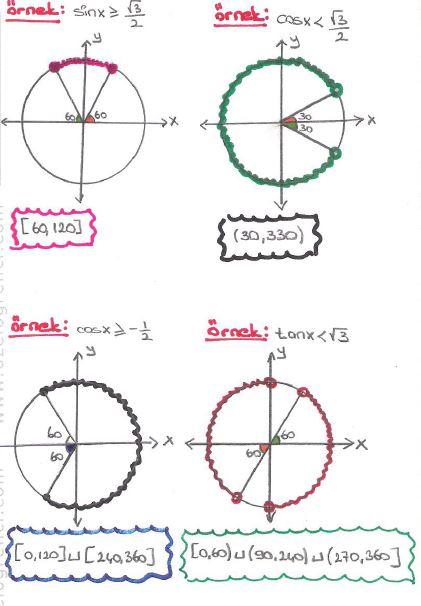 örnek: sinx ≥ √3/2
y
60 60
x
[60,120]
örnek: cosx < √3/2
y
30
30
x
(30,330)
örnek: cosx ≥ -1/2
y
60
60
x
[0,120] ⊔ [240,360]
örnek: tanx < √3
y
60
60
x
[0,60) ⊔ (90,240) ⊔ (270,360]